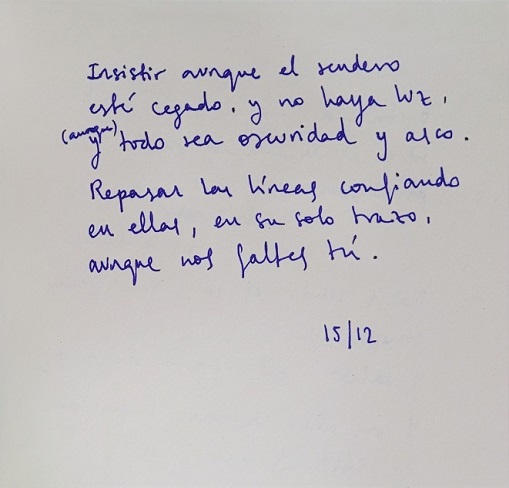 Insistir aunque el sendero
esté cegado, y no haya luz,
(aunque) y todo sea oscuridad y asco.
Repasar las líneas confiando
en ellas, en su solo trazo,
aunque nos faltes tú.
15/12